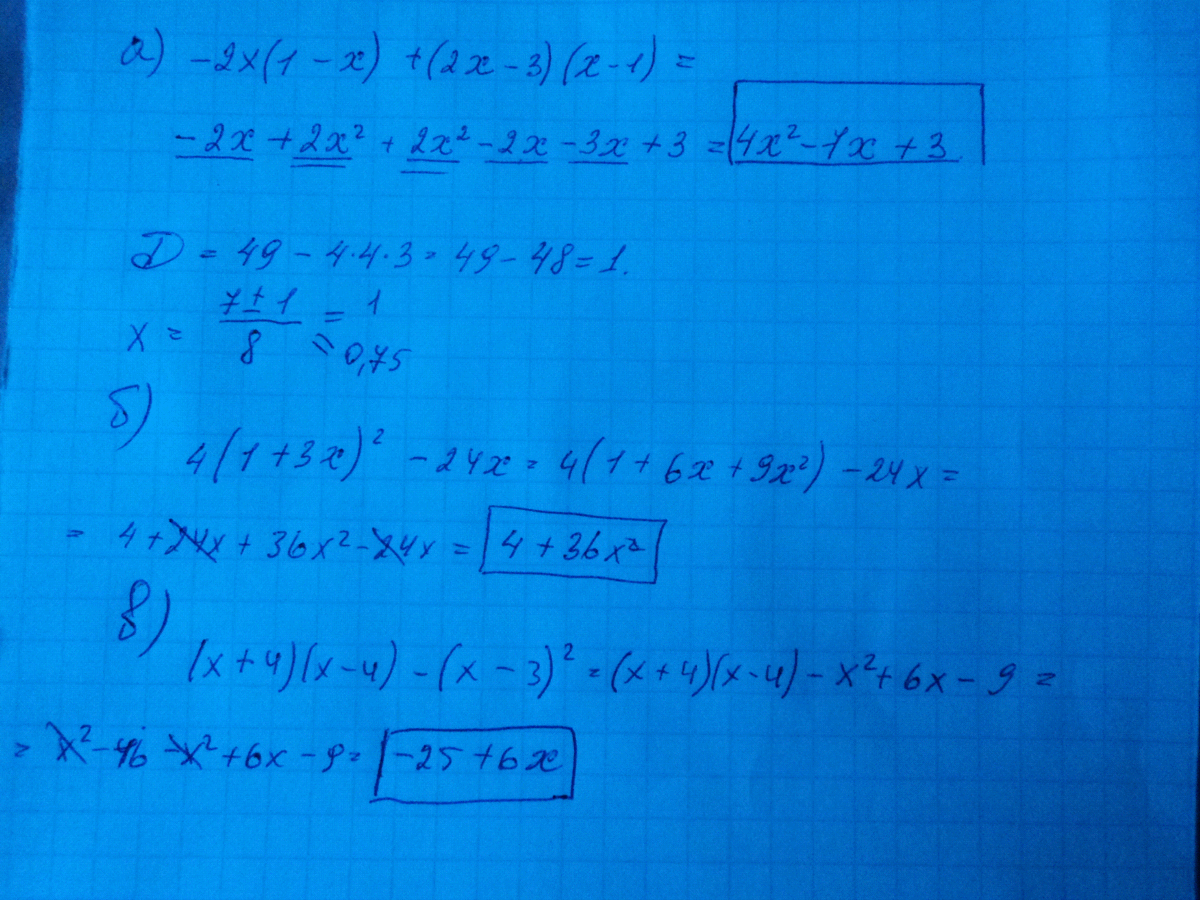 а) -2x(1-x) +(2x-3)(x-1) =
-2x + 2x² + 2x² - 2x - 3x + 3 = 4x² - 7x + 3
D = 49 - 4·4·3 = 49 - 48 = 1.
x = (7±1)/8 = 1
= 0,75
б)
4(1+3x)² - 24x = 4(1+6x+9x²) - 24x =
= 4 + 24x + 36x² - 24x = 4 + 36x²
в)
(x+4)(x-4) - (x-3)² = (x+4)(x-4) - x² + 6x - 9 =
= x² - 16 - x² + 6x - 9 = -25 + 6x